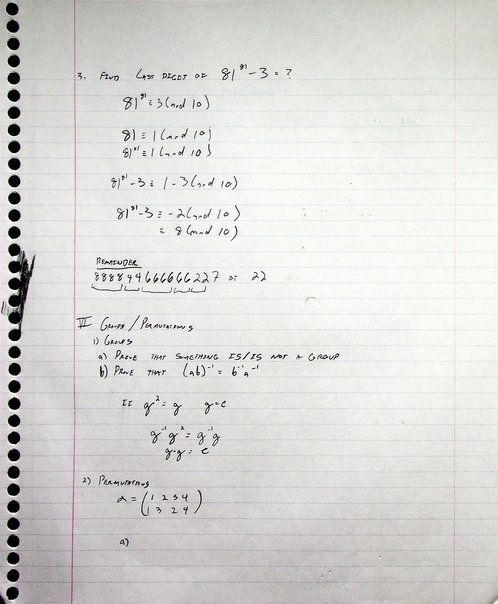 3. FIND LAST DIGIT OF 81^81 - 3 = ?
81^81 ≡ 3 (mod 10)
81 ≡ 1 (mod 10)
81^81 ≡ 1 (mod 10)
81^81 - 3 ≡ 1 - 3 (mod 10)
81^81 - 3 ≡ -2 (mod 10)
≡ 8 (mod 10)
REMAINDER
888844666666227 22
VI GROUPS / PERMUTATIONS
1) GROUPS
a) PROVE THAT SOMETHING IS/IS NOT A GROUP
b) PROVE THAT (ab)^-1 = b^-1 a^-1
IF g^2 = g g = e
g^-1 g^2 = g^-1 g
g·g = e
2) PERMUTATIONS
α = ( 1 2 3 4
1 3 2 4 )
a)